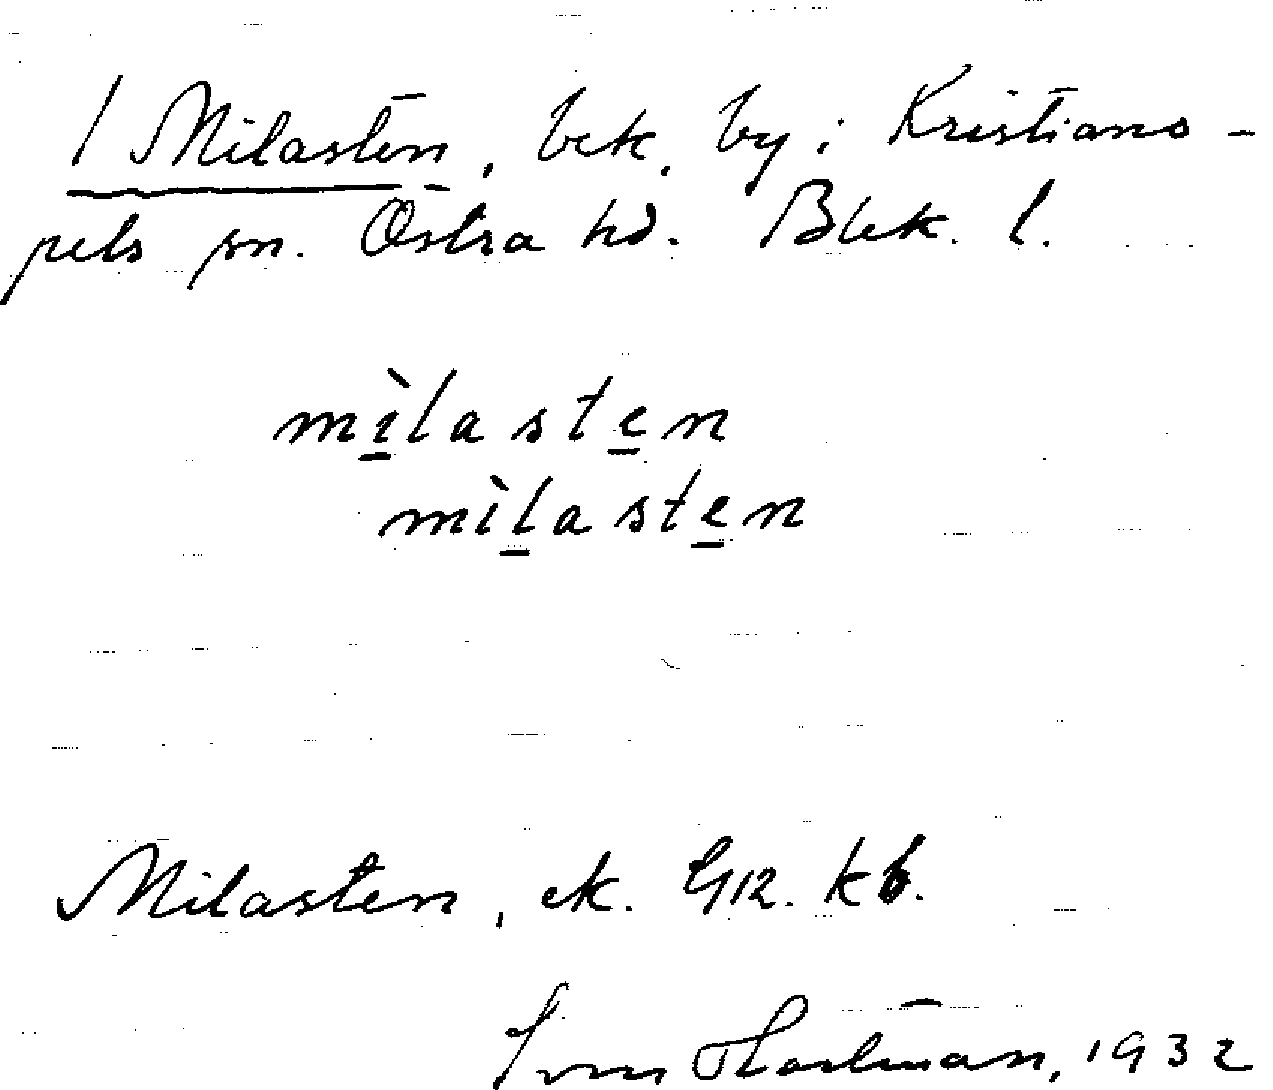 / Milasten, bek. by i Kristiano-
pels sn. Östra hd. Blek. l.
mìlasten
mìlasten
Milasten, ek. G12. kb.
Hartman, 1932